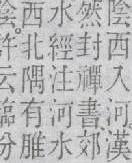 陰西入河漢
然封禪書郊
水經注河水
西北隅有脽
陰。許云臨汾